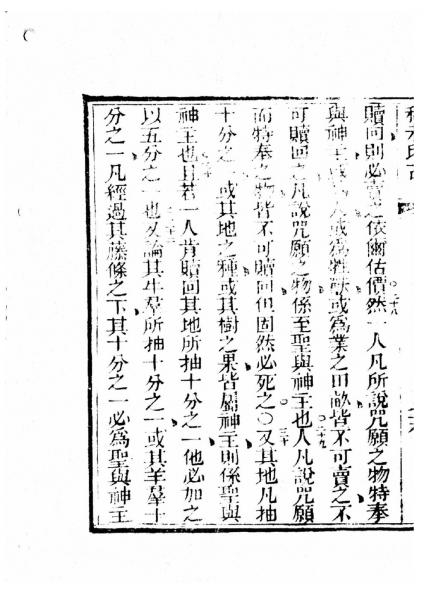 贖回則必賣之依爾估價然一人凡所說咒願之物特奉
與神主或為人或為牲獸或為業之田畝皆不可賣之不
可贖回之凡說咒願之物係至聖與神主也人凡說咒願
而特奉之物皆不可贖回但固然必死之〇又其地凡抽
十分之一或其地之種或其樹之果皆屬神主則係聖與
神主也且若一人肯贖回其地所抽十分之一他必加之
以五分之一也又論其牛羣所抽十分之一或其羊羣十
分之一凡經過其藤條之下其十分之一必為聖與神主